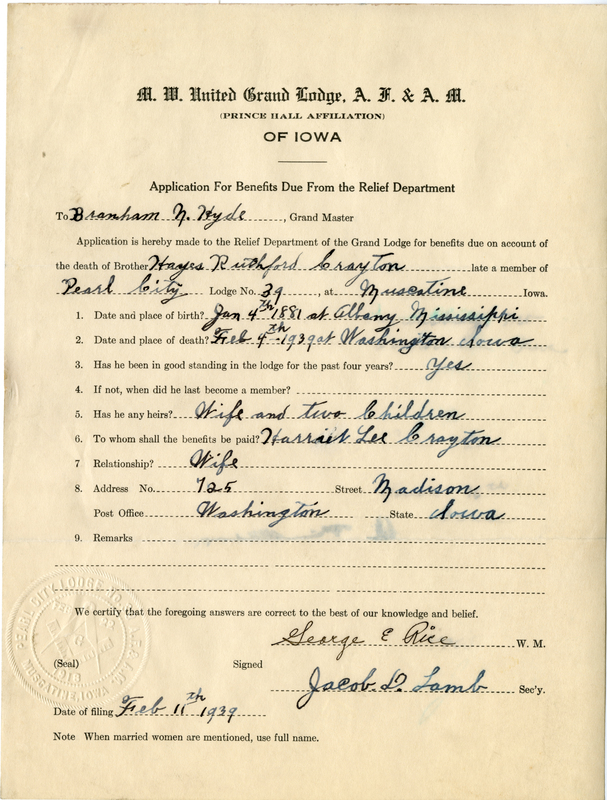 M. W. United Grand Lodge, A. F. & A. M.
(PRINCE HALL AFFILIATION)
OF IOWA
Application For Benefits Due From the Relief Department
To Branham N. Hyde, Grand Master
Application is hereby made to the Relief Department of the Grand Lodge for benefits due on account of
the death of Brother Hayes Ruthford Crayton late a member of
Pearl City Lodge No. 39, at Muscatine Iowa.
1. Date and place of birth? Jan 4th 1881 at Albany Mississippi
2. Date and place of death? Feb 4th 1939 at Washington Iowa
3. Has he been in good standing in the lodge for the past four years? Yes
4. If not, when did he last become a member?
5. Has he any heirs? Wife and two Children
6. To whom shall the benefits be paid? Harriet Lee Crayton
7 Relationship? Wife
8. Address No. 725 Street Madison
Post Office Washington State Iowa
9. Remarks
We certify that the foregoing answers are correct to the best of our knowledge and belief.
George E Rice W. M.
(Seal) Signed
Jacob D. Lamb Sec'y.
PEARL CITY LODGE NO
MUSCATINE, IOWA
Date of filing Feb 11th 1939
Note When married women are mentioned, use full name.